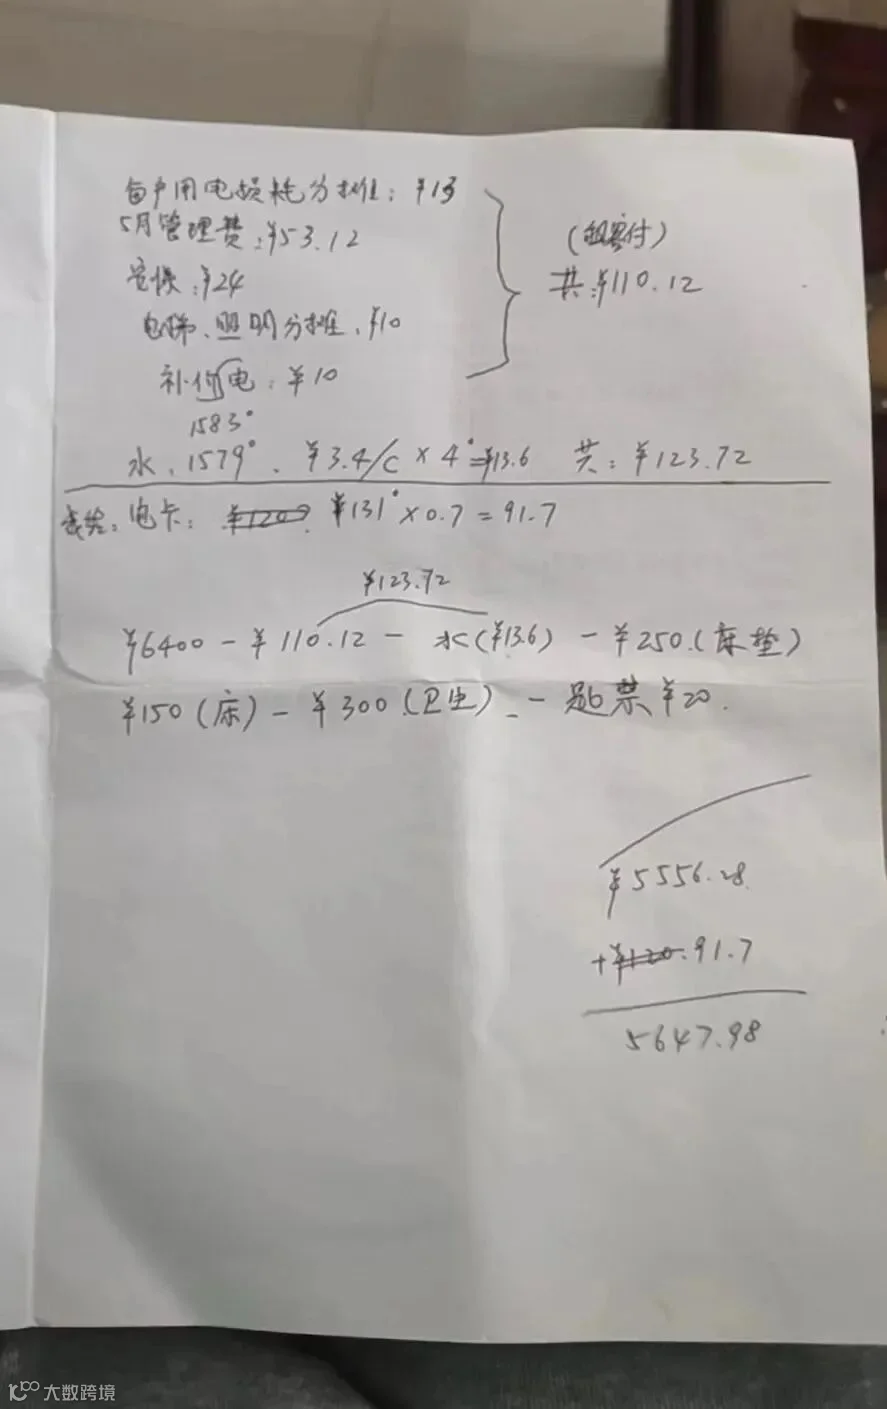 每户用电损耗分摊：¥13
5月管理费：¥53.12
¥24
电梯、照明分摊、¥10
补偿电：¥10
（租客付）
共：¥110.12
1583°
水、1579°、¥3.4/C × 4°=¥13.6 共：¥123.72
电卡：¥120 ¥131°×0.7=91.7
¥123.72
¥6400－¥110.12－水（¥13.6）－¥250.（床垫）
¥150（床）－¥300（卫生）－－ ¥20.
¥5556.28
+¥120.91.7
5647.98
大数跨境